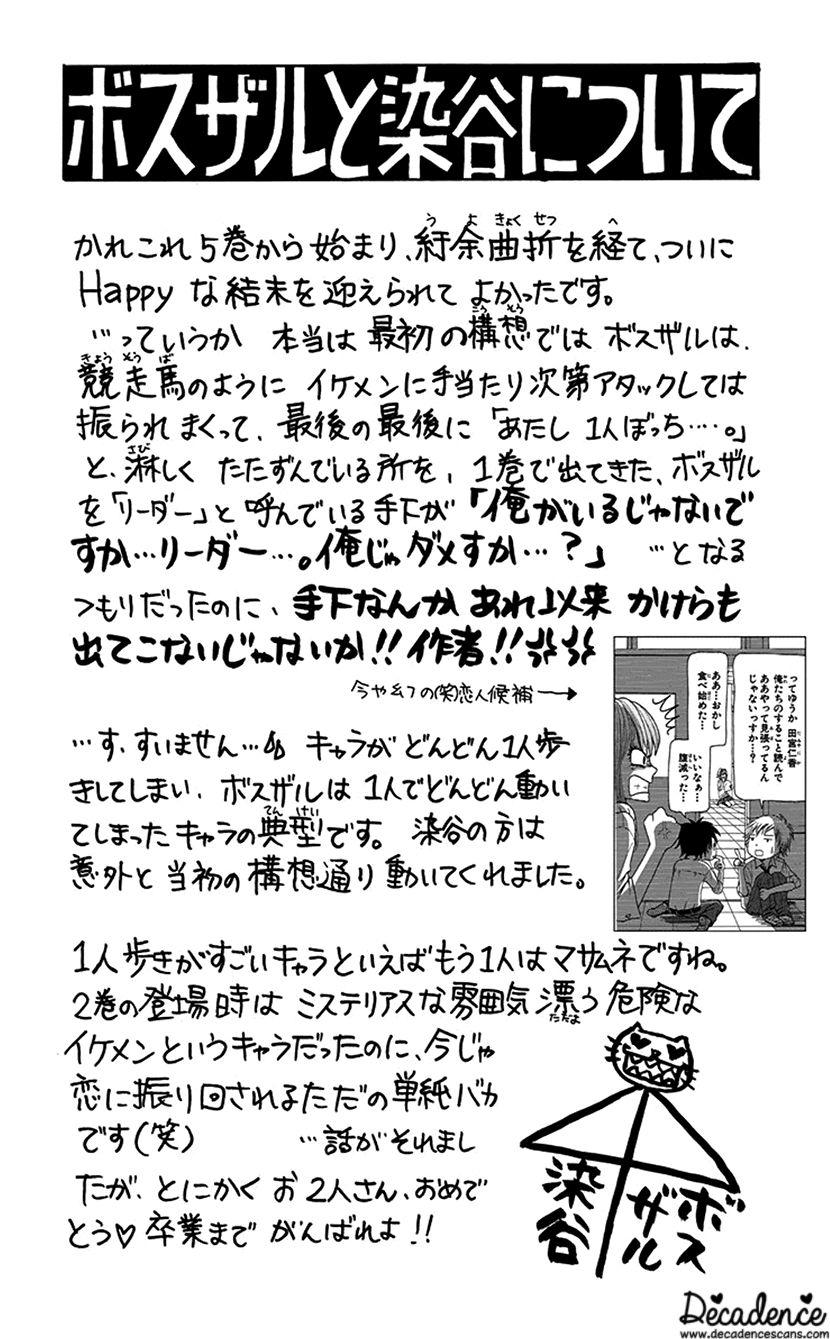 ボスザルと染谷について
かれこれ5巻から始まり、紆余曲折を経て、ついに
Happyな結末を迎えられてよかったです。
…っていうか 本当は最初の構想ではボスザルは、
競走馬のように イケメンに手当たり次第アタックしては
振られまくって、最後の最後に「あたし1人ぼっち…。」
と、淋しく たたずんでいる所を、1巻で出てきた、ボスザル
を「リーダー」と呼んでいる手下が「俺がいるじゃないで
すか…リーダー…。俺じゃダメすか…?」 …となる
つもりだったのに、手下なんかあれ以来かけらも
出てこないじゃないか!!作者!!
今や幻の(笑)恋人候補→
ってゆうか 田宮仁香
俺たちのすること読んで
ああやって見張ってるん
じゃないっすか…?
ああ…おかし
食べ始めた…
いいなぁ…
腹減った…
…す、すいません… キャラがどんどん1人歩
きしてしまい、ボスザルは1人でどんどん動い
てしまったキャラの典型です。 染谷の方は
意外と当初の構想通り動いてくれました。
1人歩きがすごいキャラといえばもう1人はマサムネですね。
2巻の登場時はミステリアスな雰囲気漂う危険な
イケメンというキャラだったのに、今じゃ
恋に振り回されるただの単純バカ
です(笑) …話がそれまし
たが、とにかくお2人さん、おめで
とう♡卒業までがんばれよ!!
染谷
ボスザル
Decadence
www.decadencescans.com